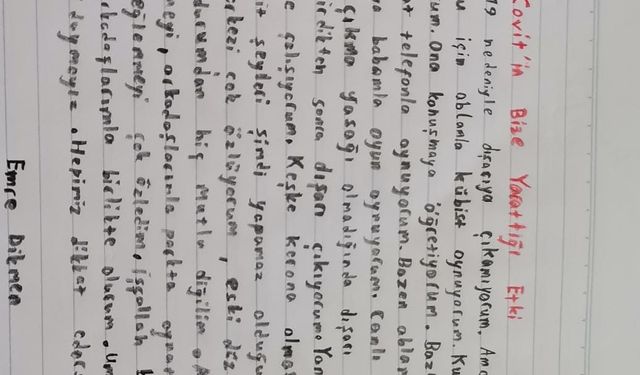 Covit'in Bize Yarattığı Etki
19 nedeniyle dışarıya çıkamıyorum. Ama
u için ablamla kübist oynuyorum. Ku
um. Ona konuşmaya öğretiyorum. Baz
at telefonla oynuyorum. Bazen ablam
babamla oyun oynuyorum. Canlı
çıkma yasağı olmadığında dışarı
irdikten sonra dışarı çıkıyorum. Yan
e çalışıyorum. Keşke korona olmas
it şeyleri şimdi yapamaz olduğu
rkezi çok özlüyorum, eski düz
durumdan hiç mutlu diğilim. A
meyi, arkadaşlarımla parkta oynam
eğlenmeyi çok özledim, işşallah b
rkadaşlarımla birlikte olurum. Um
duymayız. Hepimiz dikkat eders
Emre Dikmen